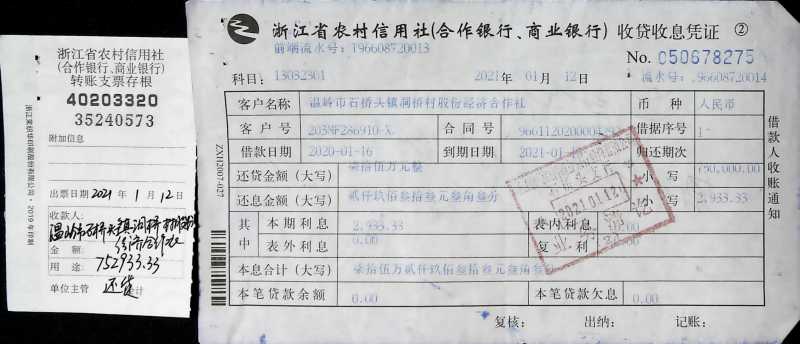 浙江省农村信用社
(合作银行、商业银行)
转账支票存根
40203320
35240573
附加信息
出票日期 2021年 1月 12日
收款人:
温岭市石桥头镇洞桥村股份
经济合作社
金额:
752933.33
用途: 还贷
单位主管 会计
浙江省农村信用社(合作银行、商业银行) 收贷收息凭证 ②
前端流水号: T96608720013
No. 050678275
科目: 13032301 2021年 01月 12日 流水号: 96608720014
客户名称 温岭市石桥头镇洞桥村股份经济合作社 币种 人民币
客户号 203NF286910-X 合同号 借据序号 1
借款日期 2020-01-16 到期日期 归还期次
还贷金额(大写) 柒拾伍万元整 小写 750,000.00
还息金额(大写) 贰仟玖佰叁拾叁元叁角叁分 小写 2,933.33
其中 本期利息 2,933.33 表内利息 0.00
表外利息 0.00 复利
本息合计(大写) 柒拾伍万贰仟玖佰叁拾叁元叁角叁分
本笔贷款余额 0.00 本笔贷款欠息 0.00
复核: 出纳: 记账:
借款人收账通知
ZXH2007-027
2021.01.12